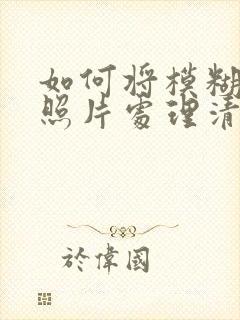 如何将模糊
照片处理清
於偉國